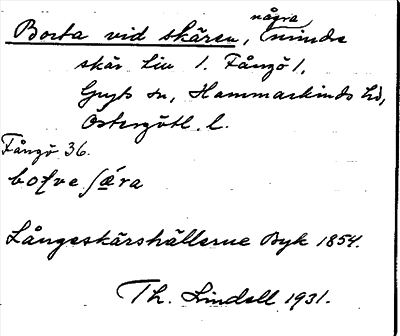 Borta vid skären, några mindre
skär Liv 1. Fångö 1,
Gryts sn, Hammarkinds hd,
Östergötl. l.
Fångö 36.
Långeskärshällerne Byk 1854.
Th. Lindell 1931.